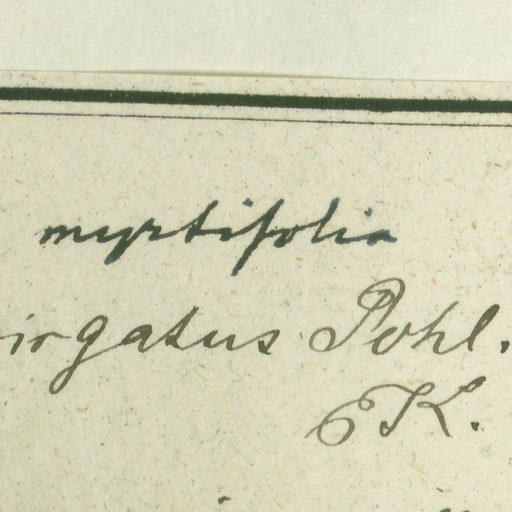 myrtifolia
irgatus Pohl.
EK.